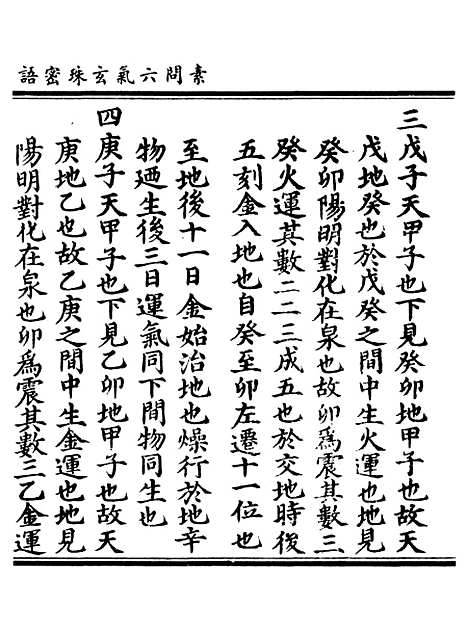 素問六氣玄珠密語
三戊子天甲子也下見癸卯地甲子也故天
戊地癸也於戊癸之間中生火運也地見
癸卯陽明對化在泉也故卯爲震其數三
癸火運其數二二三成五也於交地時後
五刻金入地也自癸至卯左遷十一位也
至地後十一日金始治地也燥行於地辛
物廼生後三日運氣同下間物同生也
四庚子天甲子也下見乙卯地甲子也故天
庚地乙也故乙庚之間中生金運也地見
陽明對化在泉也卯爲震其數三乙金運